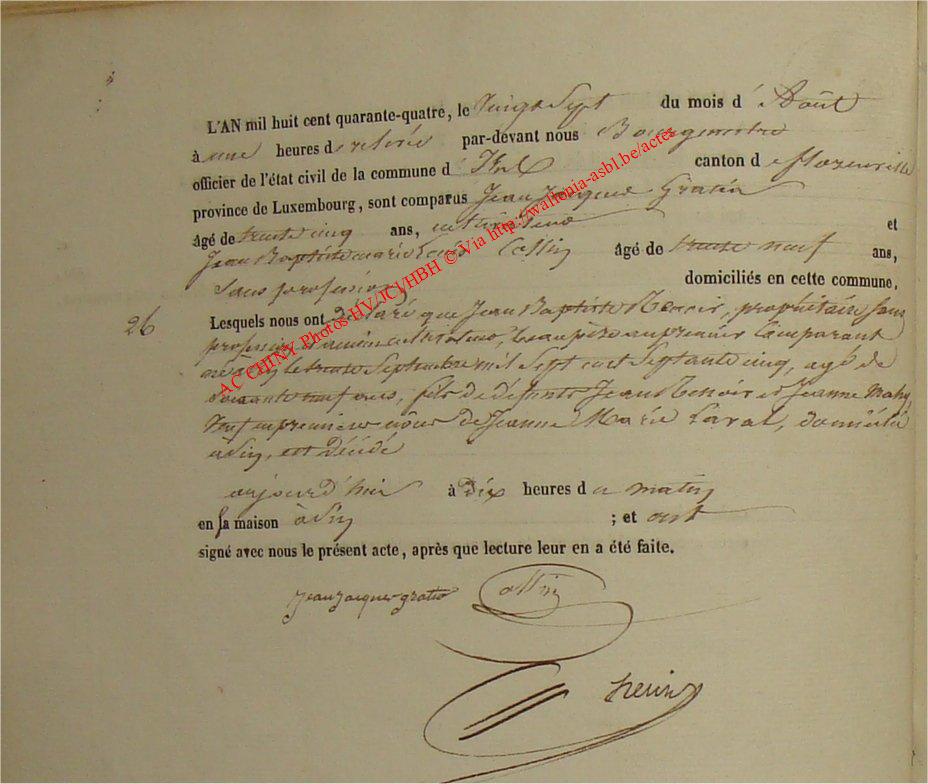 L'AN mil huit cent quarante-quatre, le Vingt Sept du mois d'Août
à une heures de relevée par-devant nous Bourgmestre
officier de l'état civil de la commune d canton de florenville
province de Luxembourg, sont comparus Jean Jacques Gratia
âgé de trente cinq ans, cultivateur et
Jean Baptiste marie Louis Collin âgé de trente neuf ans,
Sans profession domiciliés en cette commune,
26 Lesquels nous ont déclaré que Jean Baptiste propriétaire sans
profession beau père au premier Comparant
né à le Septembre mil Sept cent Septante cinq, agé de
Soixante neuf ans, fils de défunts Jean et Jeanne Mahy
Veuf en premières nôces de Jeanne Marie Laval, domicilié
à est décédé
aujourd'hui à dix heures du matin
en sa maison à ; et ont
signé avec nous le présent acte, après que lecture leur en a été faite.
Jean Jacques gratia Collin
AC CHINY Photos HV/JCI/HBH © Via http://wallonia-asbl.be/actes